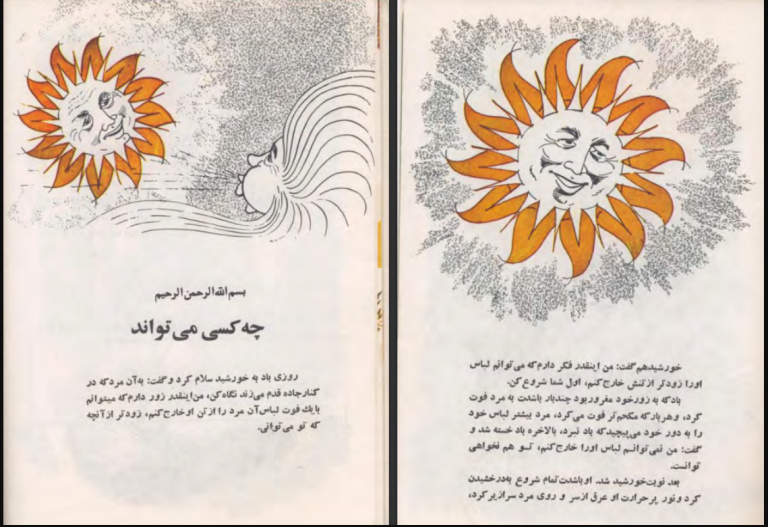 بسم الله الرحمن الرحیم
چه کسی می تواند
روزی باد به خورشید سلام کرد و گفت: به آن مرد که در
کنار جاده قدم می زند نگاه کن، من اینقدر زور دارم که میتوانم
با یك فوت لباس آن مرد را از تن او خارج کنم، زودتر از آنچه
که تو می توانی.
خورشید هم گفت: من اینقدر فکر دارم که می توانم لباس
او را زودتر از تنش خارج کنم، اول شما شروع کن.
باد که به زور خود مغرور بود چند بار با شدت به مرد فوت
کرد، و هر بار که محکم تر فوت می کرد، مرد بیشتر لباس خود
را به دور خود می پیچید که باد نبرد، بالاخره باد خسته شد و
گفت: من نمی توانم لباس او را خارج کنم، تو هم نخواهی
توانست.
بعد نوبت خورشید شد. او با شدت تمام شروع به درخشیدن
کرد و نور پر حرارت او عرق از سر و روی مرد سرازیر کرد،